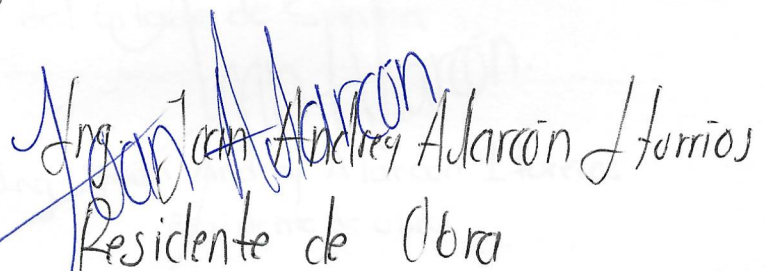 Joan Alarcón
Ing. Joan Andrey Alarcón Iturrios
Residente de Obra